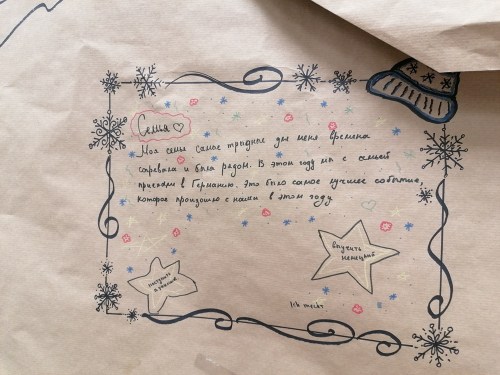 Семья
Моя семья самое трудное для меня времена
согревала и была рядом. В этом году мы с семьёй
приехали в Германию. Это было самое лучшее событие,
которое произошло с нами в этом году
выучить
немецкий
Ich